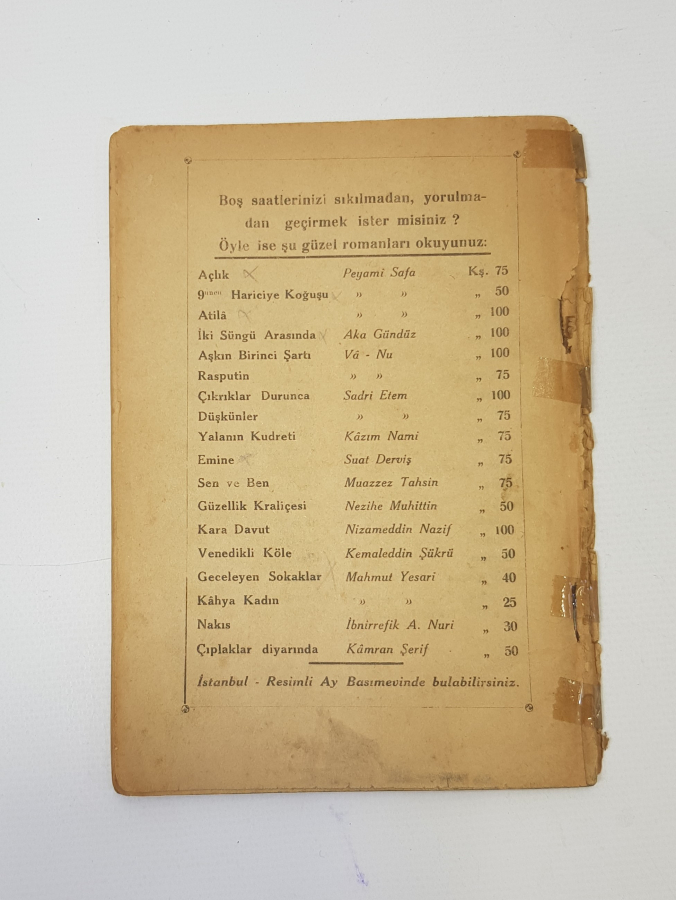 Boş saatlerinizi sıkılmadan, yorulma-
dan geçirmek ister misiniz ?
Öyle ise şu güzel romanları okuyunuz:
Açlık Peyami Safa Kş. 75
9uncu Hariciye Koğuşu » » „ 50
Atilâ » » „ 100
İki Süngü Arasında Aka Gündüz „ 100
Aşkın Birinci Şartı Vâ - Nu „ 100
Rasputin » » „ 75
Çıkrıklar Durunca Sadri Etem „ 100
Düşkünler » » „ 75
Yalanın Kudreti Kâzım Nami „ 75
Emine Suat Derviş „ 75
Sen ve Ben Muazzez Tahsin „ 75
Güzellik Kraliçesi Nezihe Muhittin „ 50
Kara Davut Nizameddin Nazif „ 100
Venedikli Köle Kemaleddin Şükrü „ 50
Geceleyen Sokaklar Mahmut Yesari „ 40
Kâhya Kadın » » „ 25
Nakıs İbnirrefik A. Nuri „ 30
Çıplaklar diyarında Kâmran Şerif „ 50
İstanbul - Resimli Ay Basımevinde bulabilirsiniz.